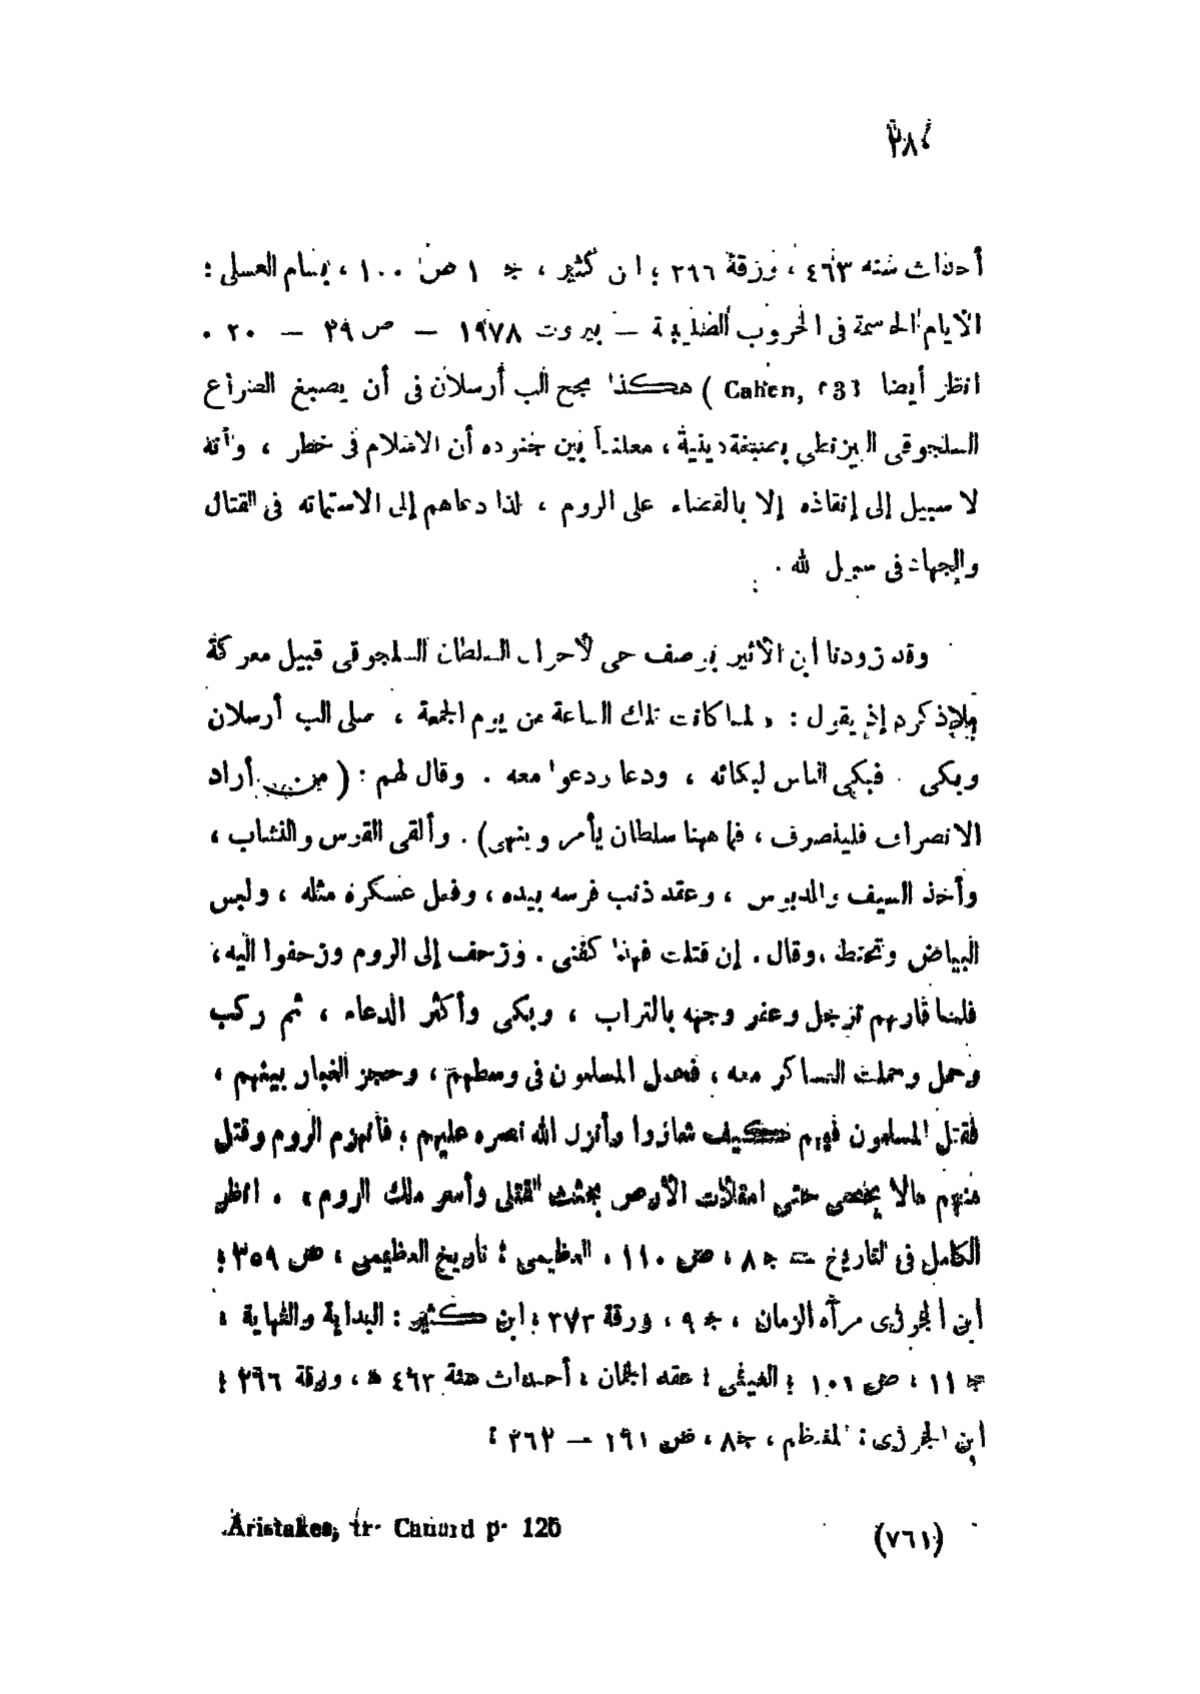 أحداث سنة ٤٦٣ ، ورقة ٢٦٦ ؛ ابن كثير ، جـ ١ ص ١٠٠ ، بسام العسلى :
الأيام الحاسمة فى الحروب الصليبية – بيروت ١٩٧٨ – ص ٢٩ – ٢٠ .
انظر أيضا Cahen, ( هكذا نجح الب أرسلان فى أن يصبغ الصراع
السلجوقى البيزنطى بصبغة دينية ، معلناً بين جنوده أن الاسلام فى خطر ، وأنه
لا سبيل إلى إنقاذه إلا بالقضاء على الروم ، لذا دعاهم إلى الاستماته فى القتال
والجهاد فى سبيل الله .
وقد زودنا ابن الأثير بوصف حى لأحوال السلطان السلجوقى قبيل معركة
ملاذكرد إذ يقول : « لما كانت تلك الساعة من يوم الجمعة ، صلى الب أرسلان
وبكى . فبكى الناس لبكائه ، ودعا ودعوا معه . وقال لهم : ( من أراد
الانصراف فلينصرف ، فما ههنا سلطان يأمر وينهى) . وألقى القوس والنشاب ،
وأخذ السيف والدبوس ، وعقد ذنب فرسه بيده ، وفعل عسكره مثله ، ولبس
البياض وتحنط ، وقال . إن قتلت فهذا كفنى . وزحف إلى الروم وزحفوا اليه ،
فلما قاربهم ترجل وعفر وجهه بالتراب ، وبكى وأكثر الدعاء ، ثم ركب
وحمل وحملت العساكر معه ، فحصل المسلمون فى وسطهم ، وحجز الغبار بينهم ،
فقتل المسلمون فيهم كيف شاءوا وأنزل الله نصره عليهم ؛ فانهزم الروم وقتل
منهم مالا يحصى حتى امتلأت الأرض بجثث القتلى وأسر ملك الروم » . انظر
الكامل فى التاريخ – جـ ٨ ، ص ١١٠ ، العظيمى : تاريخ العظيمى ، ص ٣٥٩ ؛
ابن الجوزى مرآه الزمان ، جـ ٩ ، ورقة ٢٧٣ ؛ ابن كثير : البداية والنهاية ،
جـ ١١ ، ص ١٠١ ؛ العينى : عقد الجمان ، أحداث سنة ٤٦٣ هـ ، ورقة ٢٦٦ ؛
ابن الجوزى : المنتظم ، جـ ٨ ، ص ١٩١ – ٢٦٢ ؛
(٧٦١) Aristakes, tr. Canard p. 125